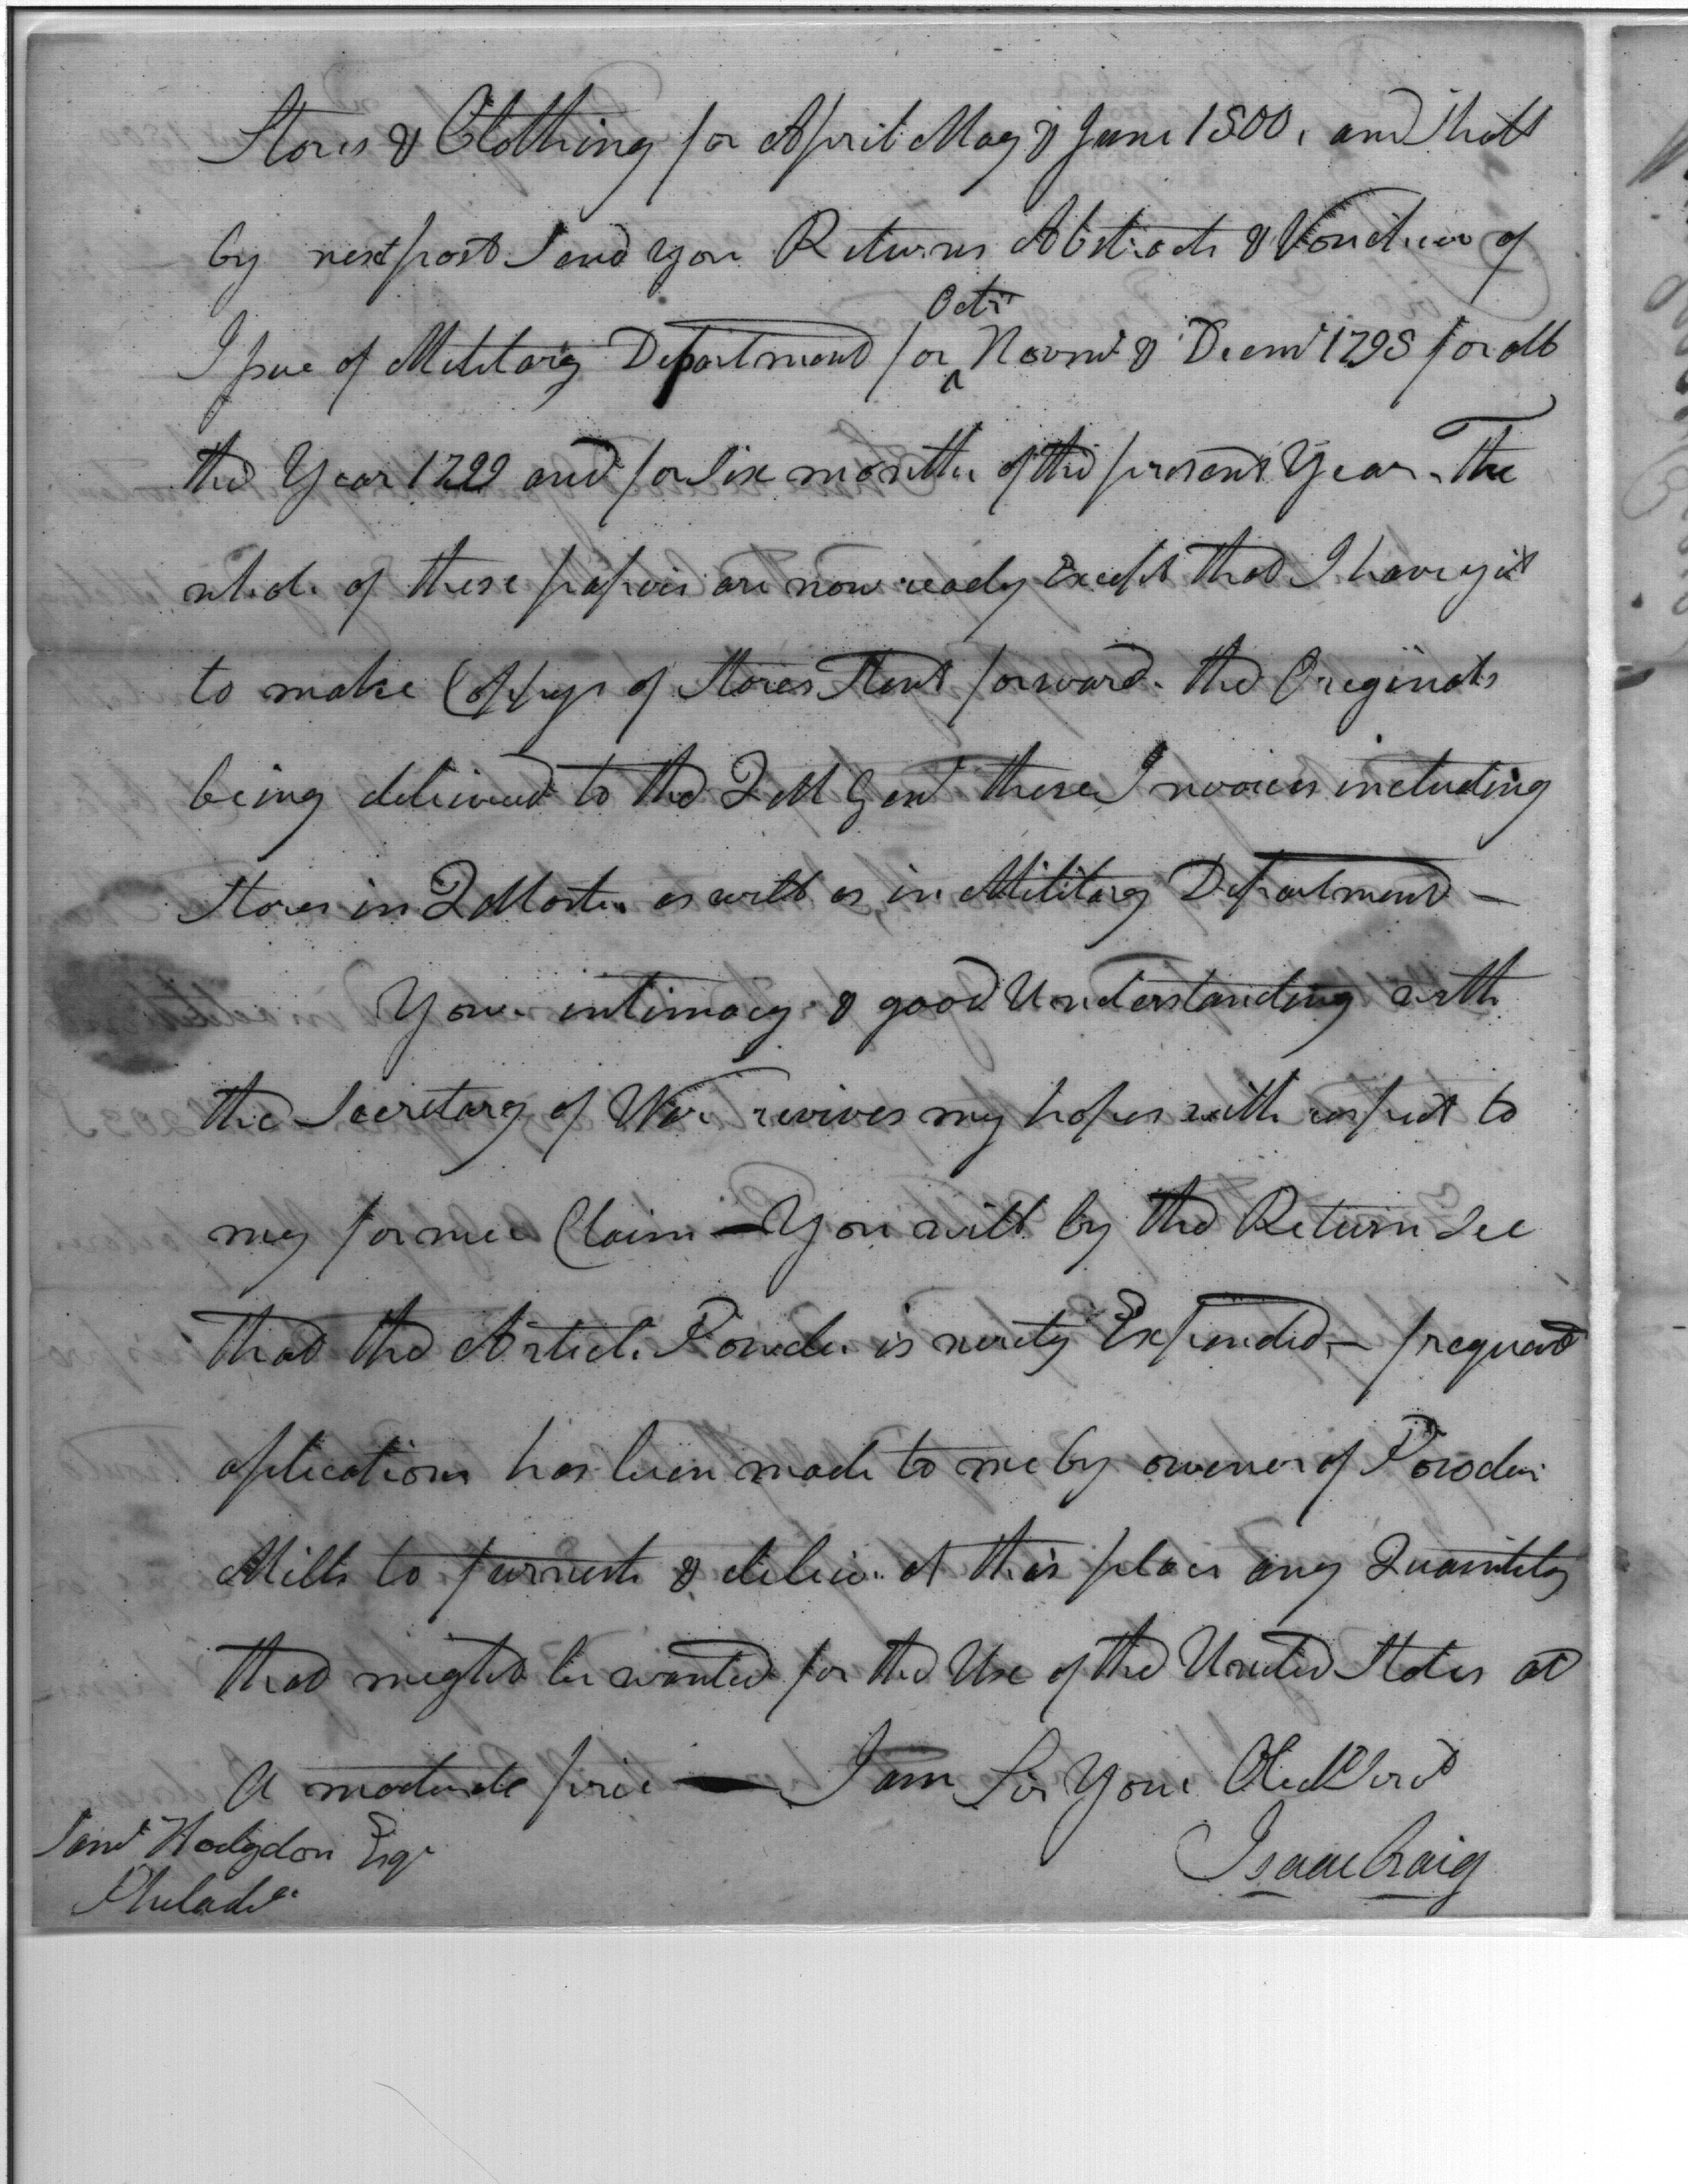 Stores & Clothing for April May & June 1800, and shall
by next post Send you Returns Abstracts & Vouchers of
Issue of Military Department for Octr Novmr & Decmr 1798 for all
the Year 1799 and for Six months of the present Year. The
whole of these papers are now ready Except that I have yet
to make Coppys of Stores Sent forward. the Originals
being delivered to the QM Genl these Invoices including
Stores in QMaster as well as in Military Department —
Your intimacy & good Understanding with
the Secretary of War revives my hopes with respect to
my former Claim — You will by the Return See
that the Article Powder is nearly Expended, — frequent
aplications has been made to me by owners of Powder
Mills to furnish & deliver at this place any Quantity
that might be wanted for the Use of the United States at
a moderate price — I am Sir Your Obed Servt
Isaac Craig
Saml Hodgdon Esqr
Philada